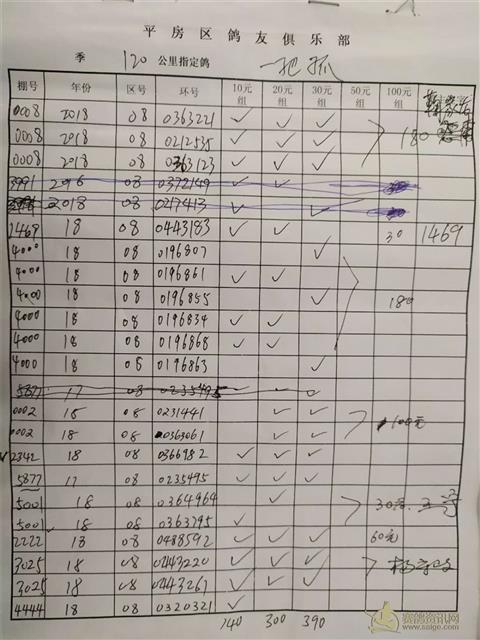 平房区鸽友俱乐部
季 120 公里指定鸽 一把抓
棚号 年份 区号 环号 10元组 20元组 30元组 50元组 100元组
0008 2018 08 0363221 ✓ ✓ ✓
0008 2018 08 0212535 ✓ ✓ ✓ 180
0008 2018 08 0363123 ✓ ✓ ✓
3991 2016 08 0372149 ✓ ✓
2018 08 0217413 ✓ ✓
1469 18 08 0443183 ✓ ✓ 30 1469
4000 18 08 0196807 ✓
4000 18 08 0196861 ✓ ✓
4000 18 08 0196855 ✓ 180
4000 18 08 0196834 ✓ ✓
4000 18 08 0196868 ✓ ✓
4000 18 08 0196863 ✓
5877 17 08 0235495
0002 18 08 0231441 ✓ ✓
0002 18 08 0363061 ✓ ✓ 100元
2342 18 08 0366982 ✓ ✓ ✓
5877 17 08 0235495 ✓ ✓ ✓
5001 18 08 0364964 ✓
5001 18 08 0363795 ✓
2222 18 08 0488592 ✓ ✓ ✓ 60元
3025 18 08 0443220 ✓ ✓ ✓
3025 18 08 0443261 ✓ ✓ ✓
4444 18 08 0320321 ✓
140 300 390
赛鸽资讯网
www.saige.com